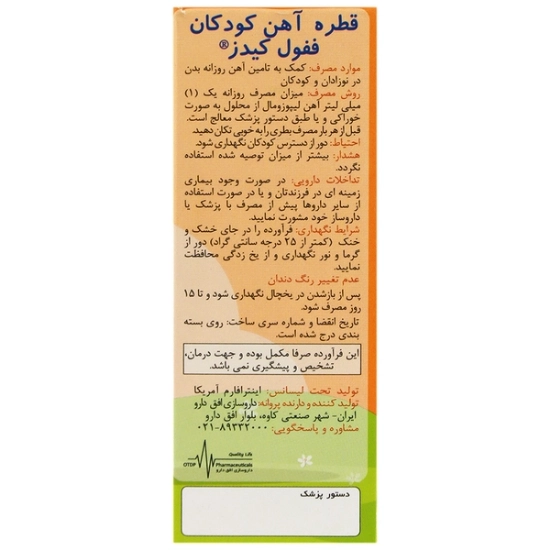 قطره آهن کودکان
ففول کیدز®
موارد مصرف: کمک به تامین آهن روزانه بدن
در نوزادان و کودکان
روش مصرف: میزان مصرف روزانه یک (۱)
میلی لیتر آهن لیپوزومال از محلول به صورت
خوراکی و یا طبق دستور پزشک معالج است.
قبل از هر بار مصرف بطری را به خوبی تکان دهید.
احتیاط: دور از دسترس کودکان نگهداری شود.
هشدار: بیشتر از میزان توصیه شده استفاده
نگردد.
تداخلات دارویی: در صورت وجود بیماری
زمینه ای در فرزندتان و یا در صورت استفاده
از سایر داروها پیش از مصرف با پزشک یا
داروساز خود مشورت نمایید.
شرایط نگهداری: فرآورده را در جای خشک و
خنک (کمتر از ۲۵ درجه سانتی گراد) دور از
گرما و نور نگهداری و از یخ زدگی محافظت
نمایید.
عدم تغییر رنگ دندان
پس از بازشدن در یخچال نگهداری شود و تا ۱۵
روز مصرف شود.
تاریخ انقضا و شماره سری ساخت: روی بسته
بندی درج شده است.
این فرآورده صرفا مکمل بوده و جهت درمان،
تشخیص و پیشگیری نمی باشد.
تولید تحت لیسانس: اینترافارم آمریکا
تولید کننده و دارنده پروانه: داروسازی افق دارو
ایران- شهر صنعتی کاوه، بلوار افق دارو
مشاوره و پاسخگویی: ۸۹۳۳۲۰۰۰-۰۲۱
Quality Life
OTDP Pharmaceuticals
داروسازی افق دارو
دستور پزشک